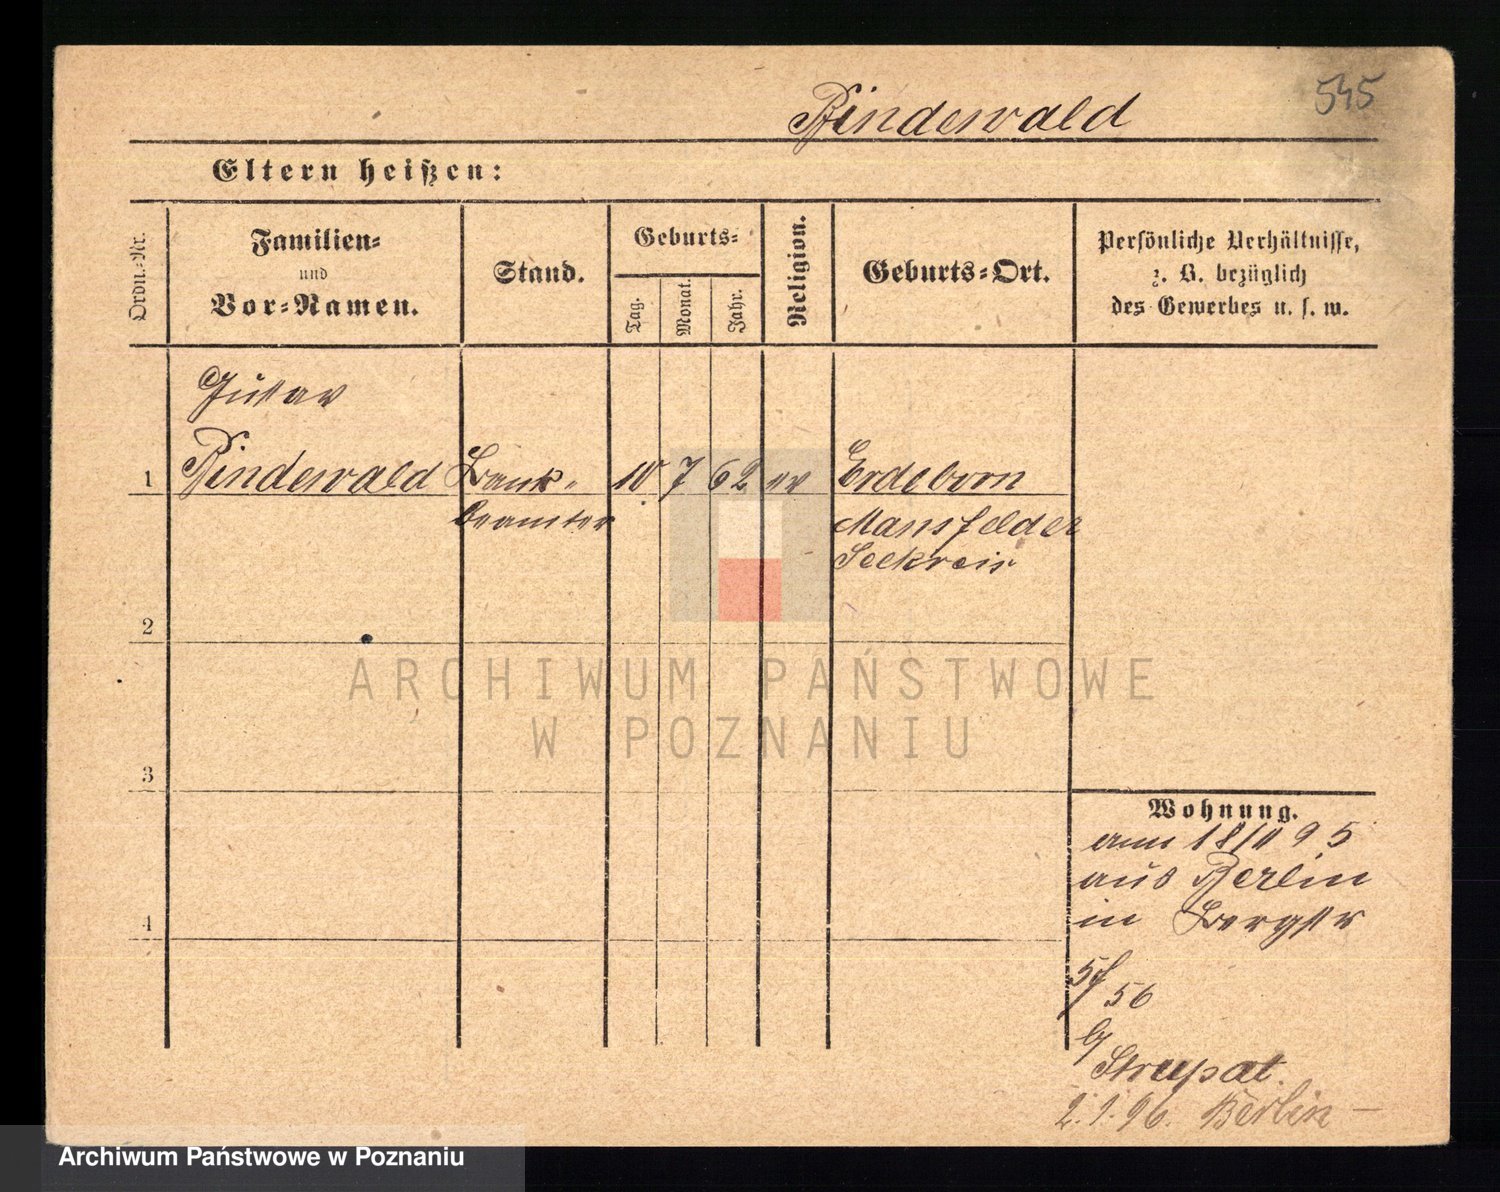 545
Bindewald
Eltern heißen:
Ordn.-Nr.
Familien-
und
Vor-Namen.
Stand.
Geburts-
Tag.
Monat.
Jahr.
Religion.
Geburts-Ort.
Persönliche Verhältnisse,
z. B. bezüglich
des Gewerbes u. s. w.
Gustav
1 Bindewald Bank- 10 7 62 ev Erdeborn
beamter Mansfelder
Seekreis
2
3
4
Wohnung.
aus Berlin
in Bergstr
56
Strupat.
2.1.96. Berlin –
ARCHIWUM PAŃSTWOWE
W POZNANIU
Archiwum Państwowe w Poznaniu